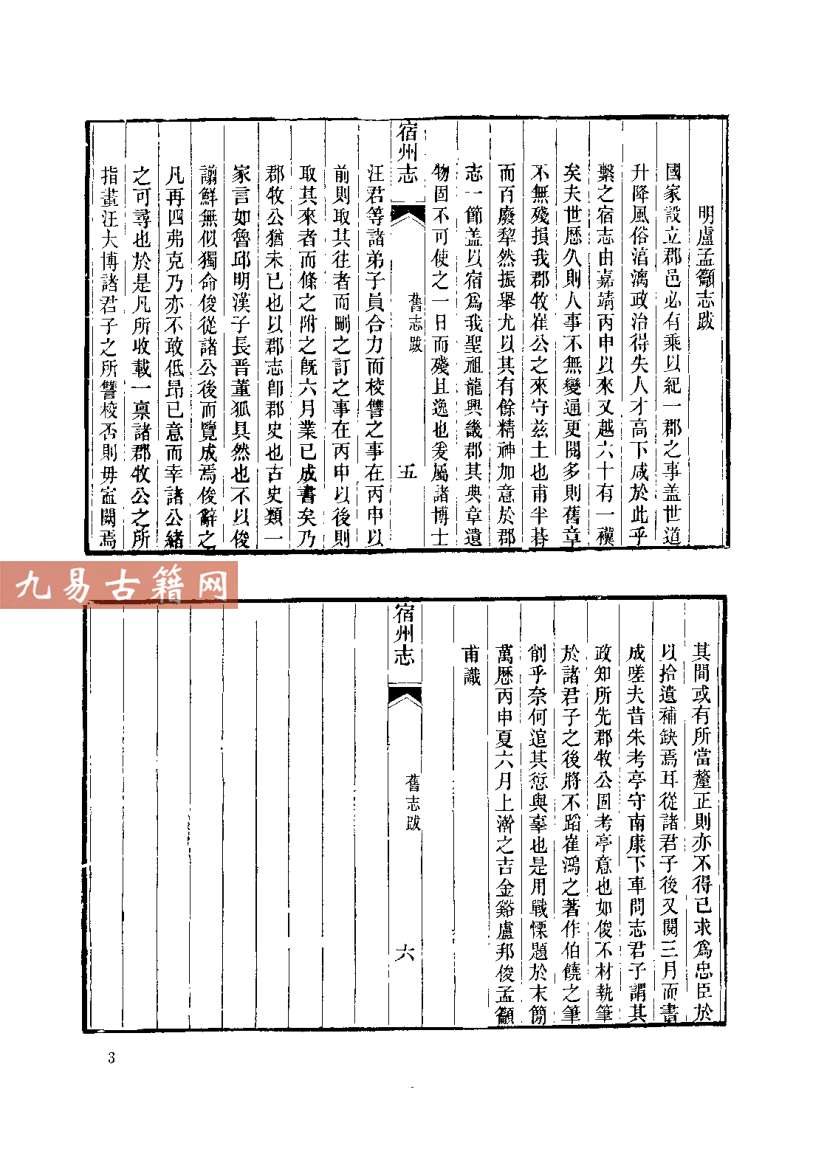 明盧孟籲志跋
國家設立郡邑必有乘以紀一郡之事蓋世道
升降風俗淳漓政治得失人才高下咸於此乎
繫之宿志由嘉靖丙申以來又越六十有一禩
矣夫世歷久則人事不無變通更閱多則舊章
不無殘損我郡牧崔公之來守茲土也甫半朞
而百廢犂然振舉尤以其有餘精神加意於郡
志一節蓋以宿爲我聖祖龍興畿郡其典章遺
物固不可使之一日而殘且逸也爰屬諸博士
宿州志
舊志跋
五
汪君等諸弟子員合力而校讐之事在丙申以
前則取其往者而刪之訂之事在丙申以後則
取其來者而條之附之旣六月業已成書矣乃
郡牧公猶未已也以郡志卽郡史也古史類一
家言如魯邱明漢子長晉董狐具然也不以俊
謭鮮無似獨命俊從諸公後而覽成焉俊辭之
凡再四弗克乃亦不敢低昂已意而幸諸公緒
之可尋也於是凡所收載一稟諸郡牧公之所
指畫汪大博諸君子之所讐校否則毋寧闕焉
其間或有所當釐正則亦不得已求爲忠臣於
以拾遺補缺焉耳從諸君子後又閱三月而書
成嗟夫昔朱考亭守南康下車問志君子謂其
政知所先郡牧公固考亭意也如俊不材執筆
於諸君子之後將不蹈崔鴻之著作伯饒之筆
削乎奈何逭其愆與辜也是用戰慄題於末簡
萬歷丙申夏六月上澣之吉金谿盧邦俊孟籲
甫識
宿州志
舊志跋
六
九易古籍网
3